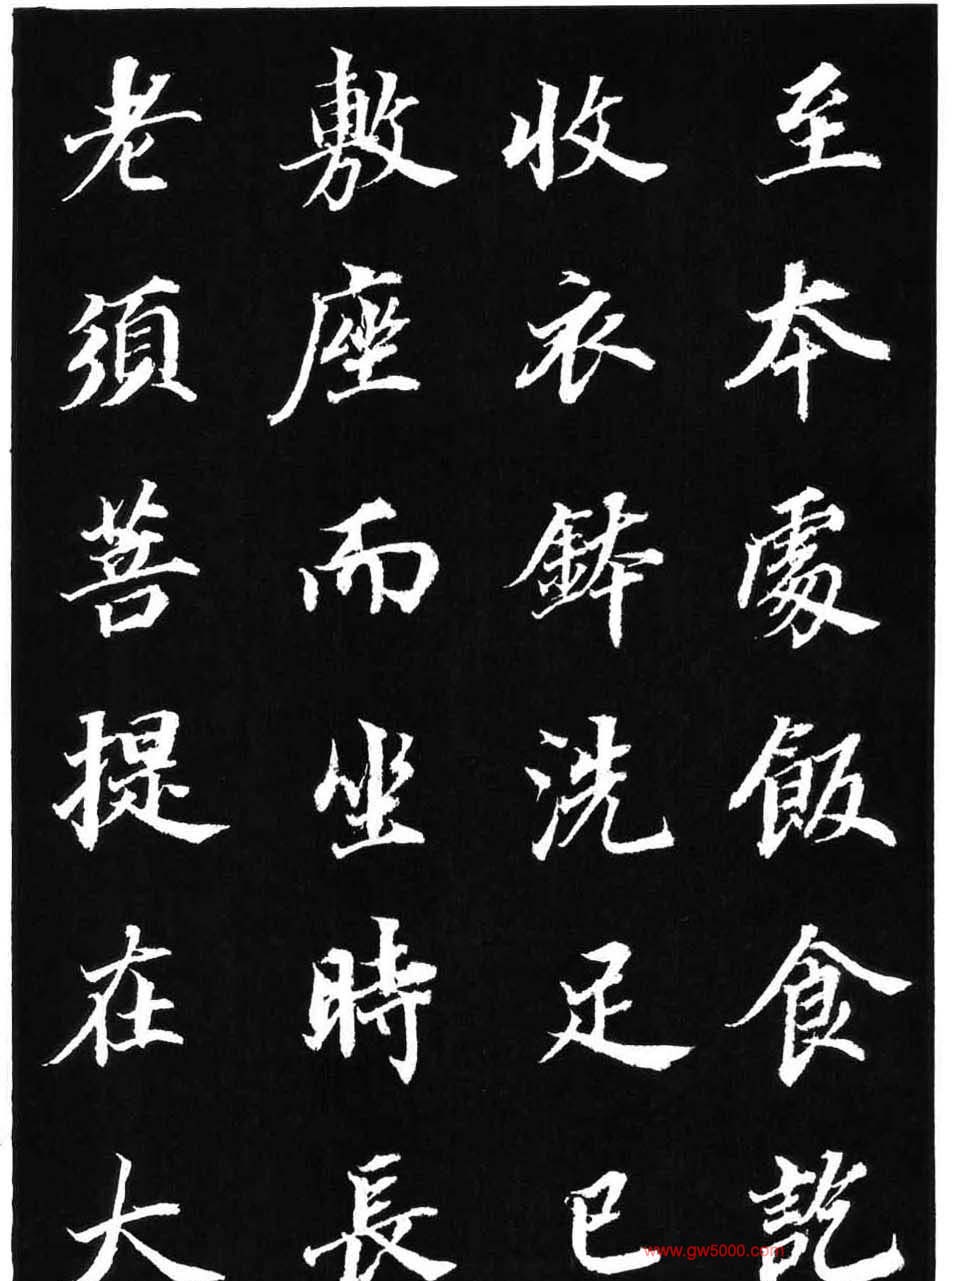 至本處飯食訖
收衣鉢洗足已
敷座而坐時長
老須菩提在大
www.gw5000.com